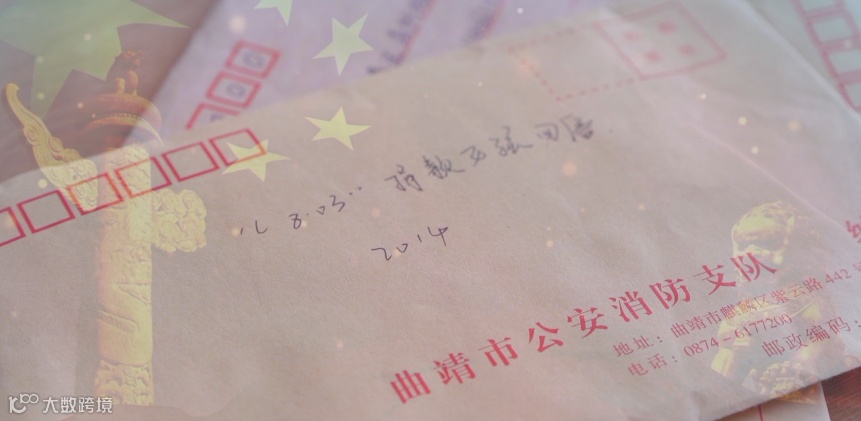 "8.03" 捐款五张回居
2014
曲靖市公安消防支队
地址：曲靖市麒麟区紫云路442
电话：0874-6177200
邮政编码：
大数跨境